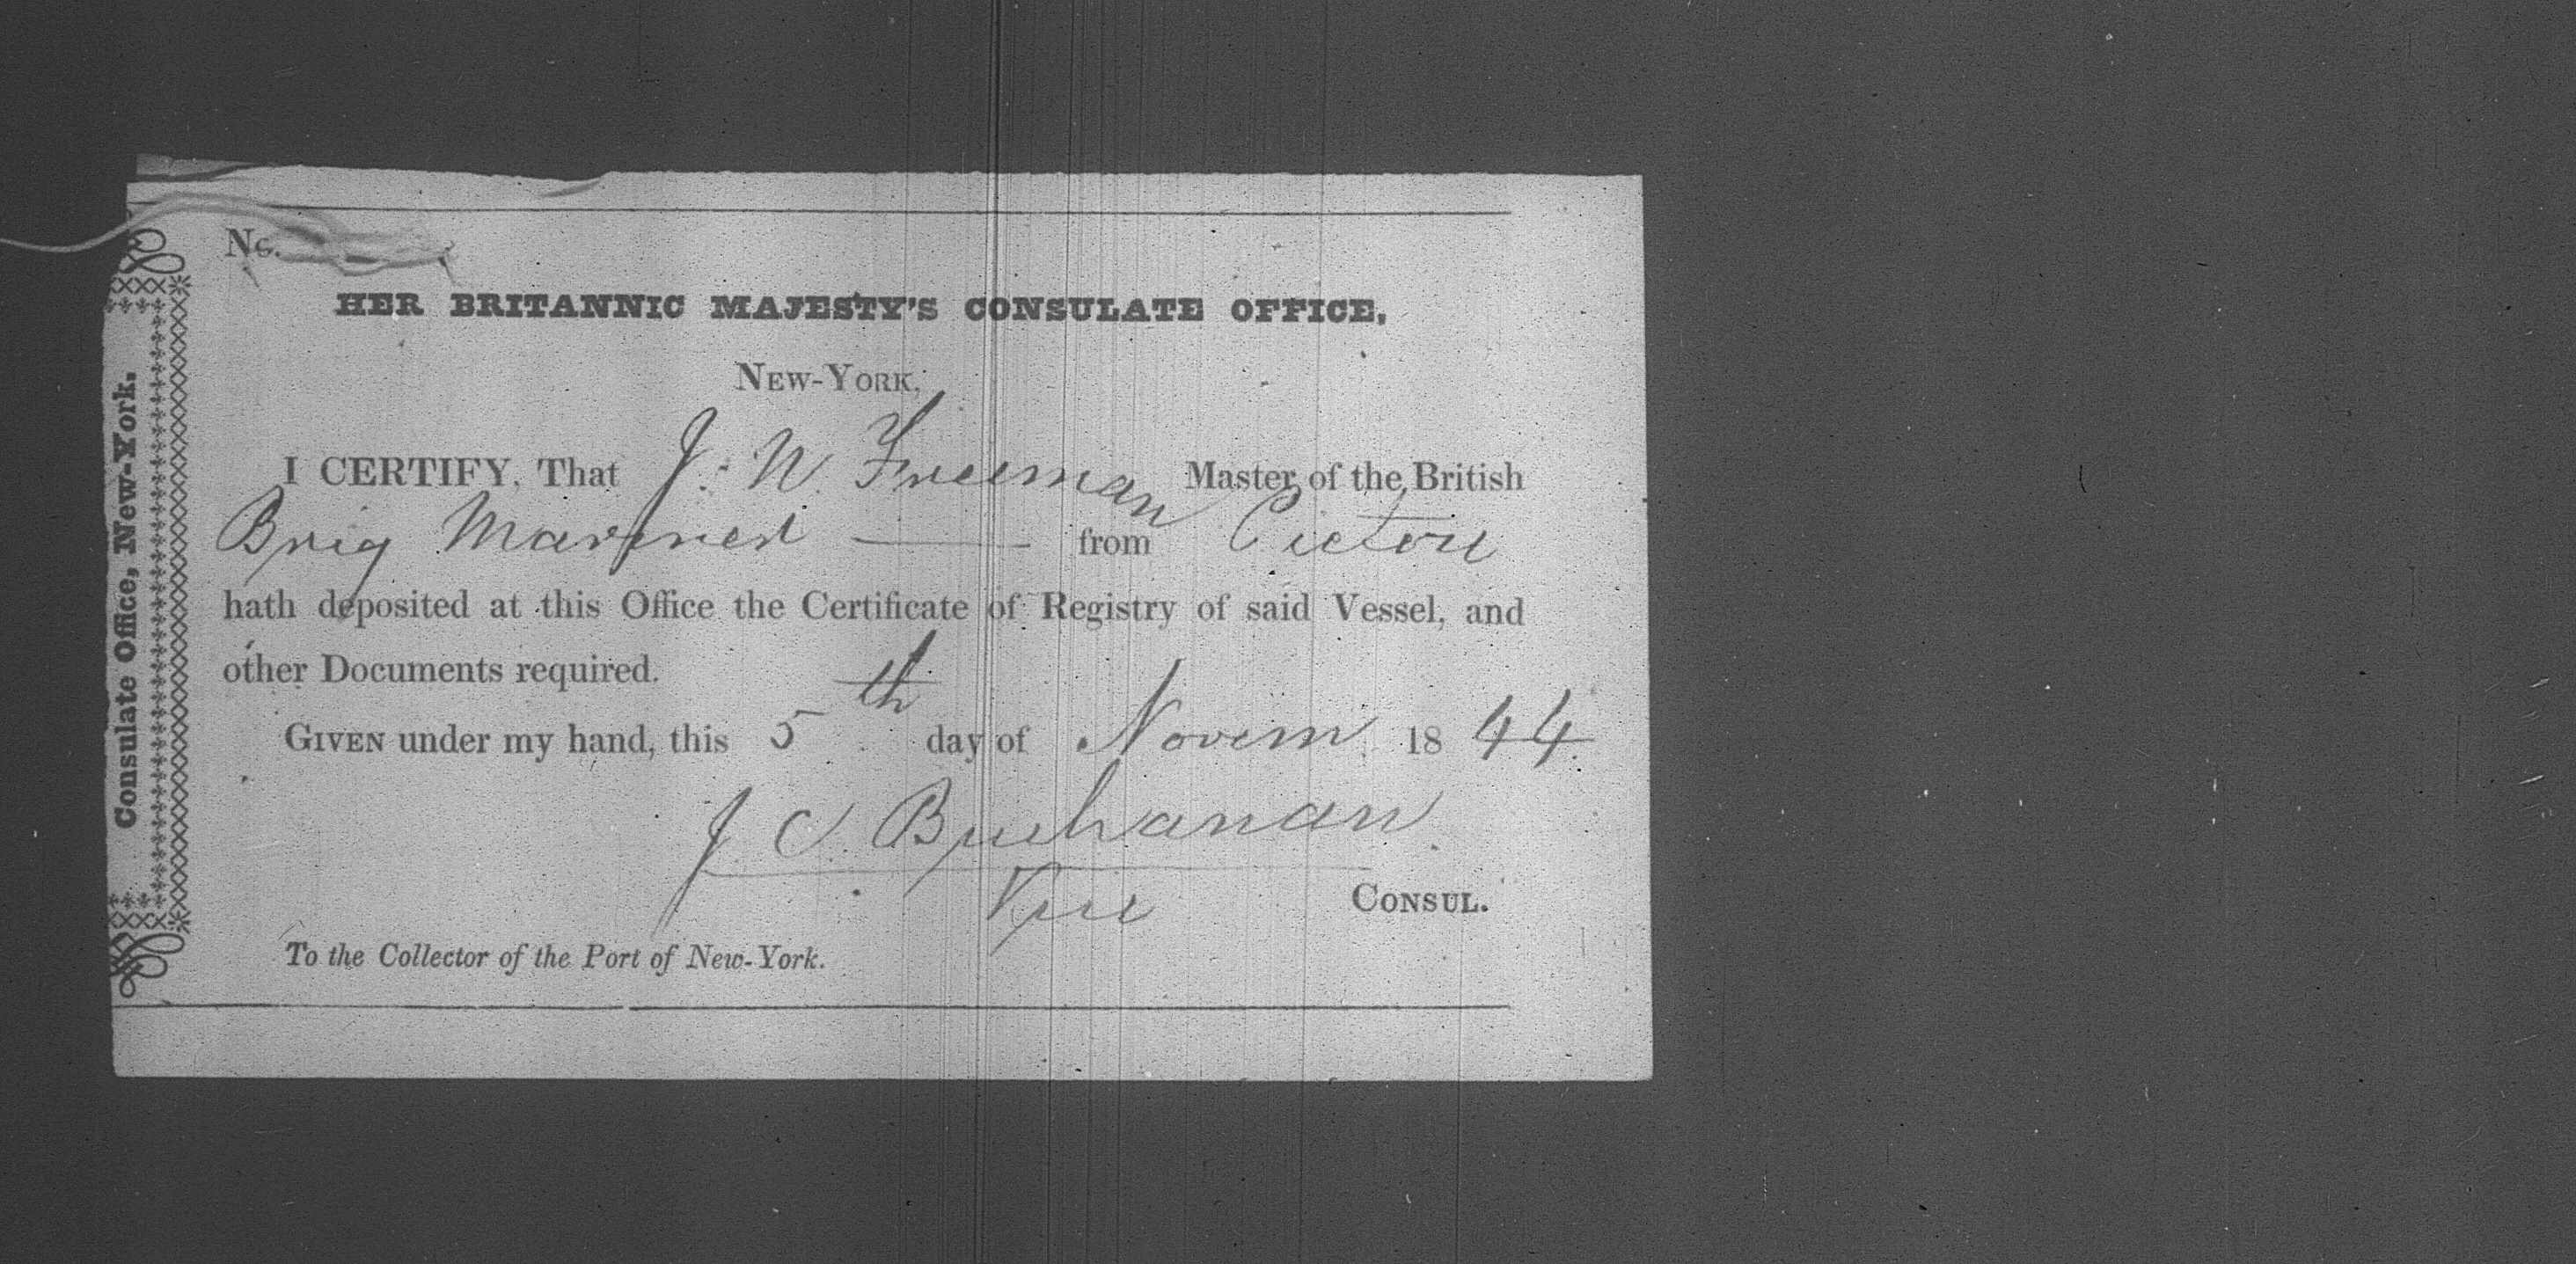 No.
HER BRITANNIC MAJESTY'S CONSULATE OFFICE,
NEW-YORK,
I CERTIFY, That J. W. Freeman Master of the British
Brig Mariner from Pictou
hath deposited at this Office the Certificate of Registry of said Vessel, and
other Documents required.
GIVEN under my hand, this 5th day of Novem 1844.
J C. Buchanan
Vice CONSUL.
To the Collector of the Port of New-York.
Consulate Office, New-York.